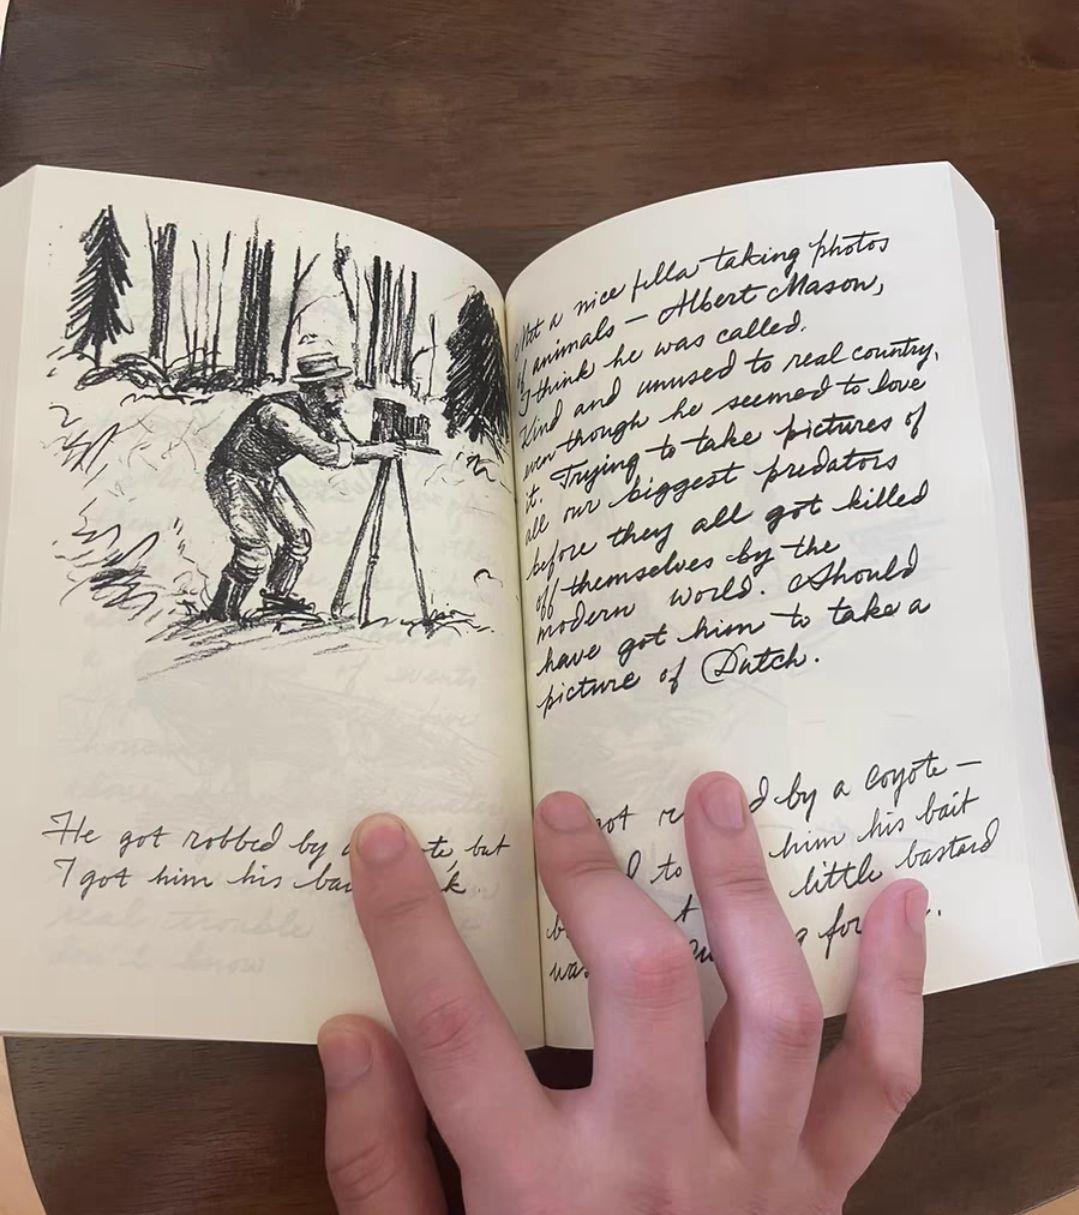 He got robbed by a but
I got him his
Met a nice fella taking photos
of animals – Albert Mason,
I think he was called.
Kind and unused to real country,
even though he seemed to love
it. Trying to take pictures of
all our biggest predators
before they all got killed
off themselves by the
modern world. Should
have got him to take a
picture of Dutch.
got by a coyote –
to him his bait
little bastard